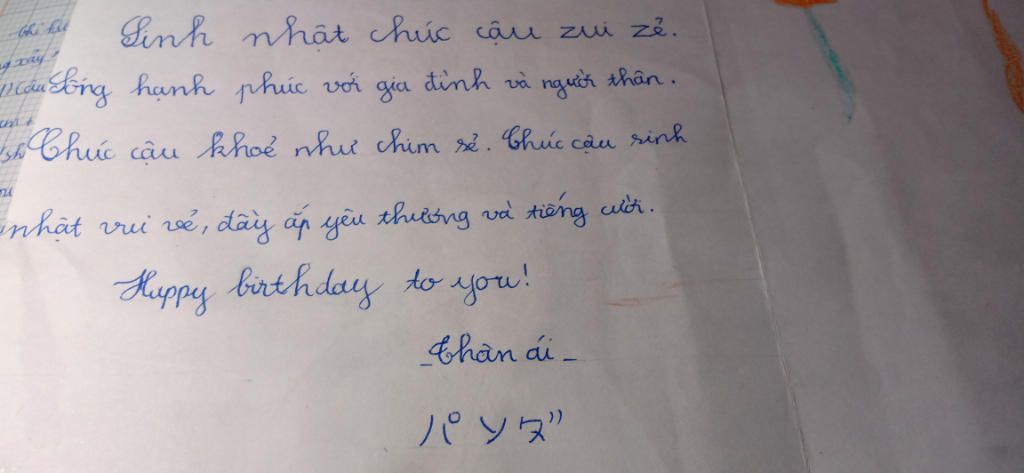 Sinh nhật chúc cậu zui zẻ.
Sống hạnh phúc với gia đình và người thân.
Chúc cậu khoẻ như chim sẻ. Chúc cậu sinh
nhật vui vẻ, đầy ắp yêu thương và tiếng cười.
Happy birthday to you!
- Thân ái -
パンダ